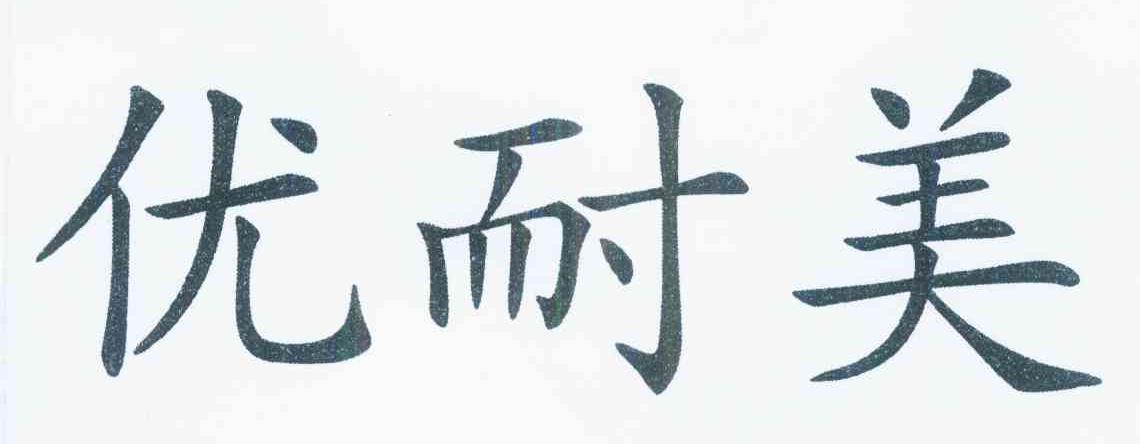 优耐美